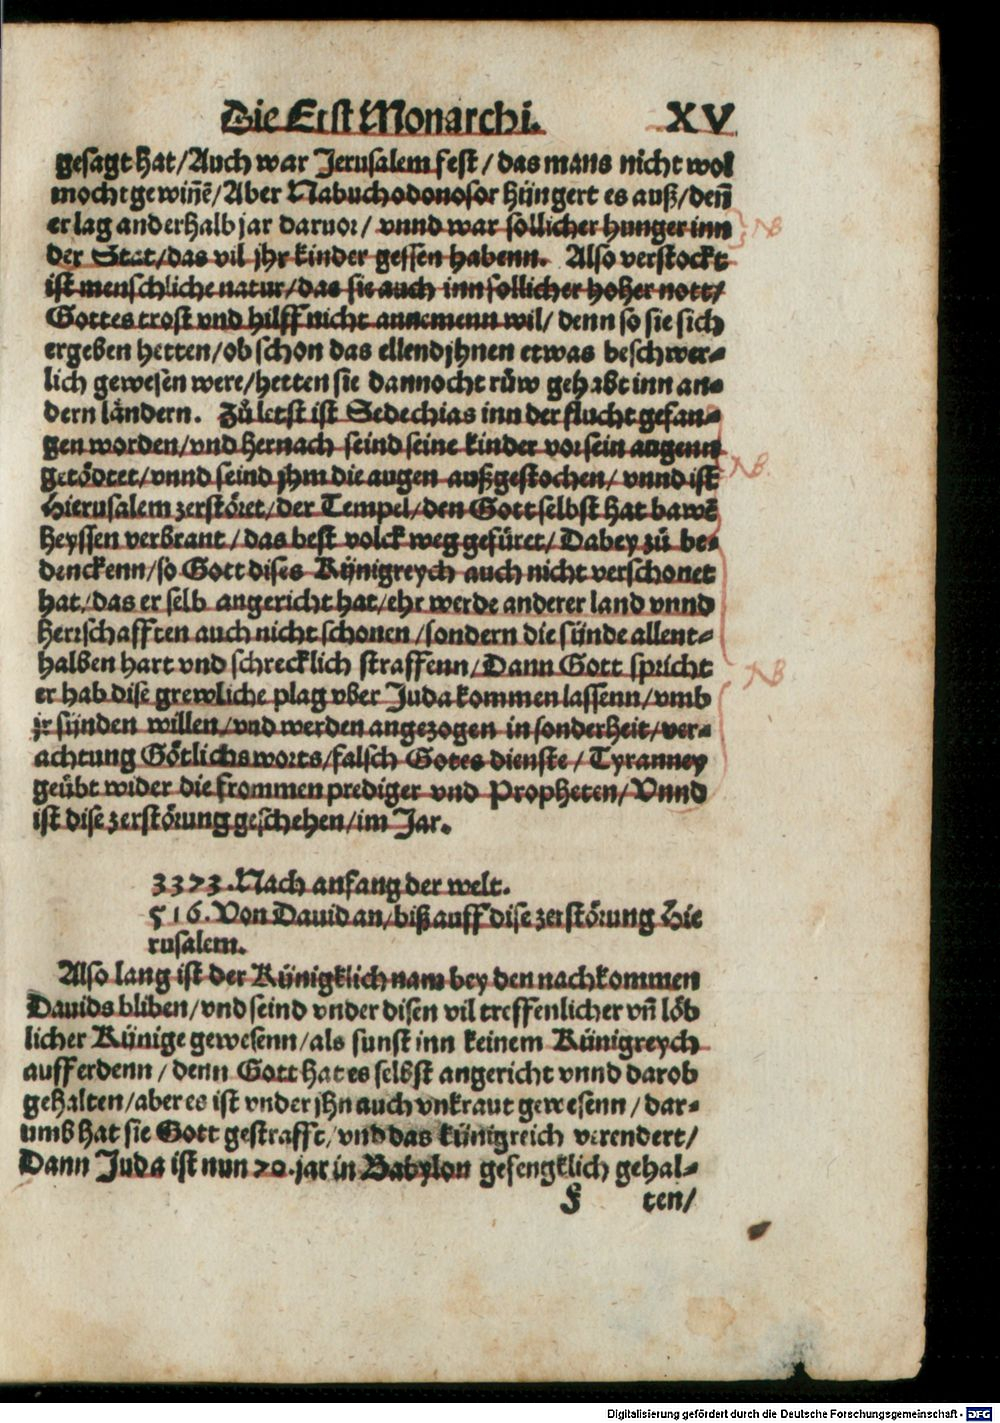 Die Erst Monarchi. XV
gesagt hat/Auch war Jerusalem fest/das mans nicht wol
mocht gewiñẽ/Aber Nabuchodonosor hüngert es auß/deñ
er lag anderhalb jar daruor/vnnd war sollicher hunger inn NB
der Stat/das vil jhr kinder gessen habenn. Also verstockt
ist menschliche natur/das sie auch inn sollicher hoher nott/
Gottes trost vnd hilff nicht annemenn wil/denn so sie sich
ergeben hetten/ob schon das ellend jhnen etwas beschwer-
lich gewesen were/hetten sie dannocht růw gehabt inn an-
dern ländern. Zů letst ist Sedechias inn der flucht gefan-
gen worden/vnd hernach seind seine kinder vor sein augenn
getödtet/vnnd seind jhm die augen außgestochen/vnnd ist NB.
Hierusalem zerstöret/der Tempel/den Gott selbst hat bawẽ
heyssen verbrant/das best volck weg gefüret/Dabey zů be-
denckenn/so Gott dises Künigreych auch nicht verschonet
hat/das er selb angericht hat/ehr werde anderer land vnnd
herrschafften auch nicht schonen/sondern die sünde allent-
halben hart vnd schrecklich straffenn/Dann Gott spricht NB
er hab dise grewliche plag vber Juda kommen lassenn/vmb
jr sünden willen/vnd werden angezogen in sonderheit/ver-
achtung Götlichs worts/falsch Gotes dienste/Tyranney
geübt wider die frommen prediger vnd Propheten/Vnnd
ist dise zerstörung geschehen/im Jar.
3373. Nach anfang der welt.
516. Von Dauid an/biß auff dise zerstörung Hie
rusalem.
Also lang ist der Künigklich nam bey den nachkommen
Dauids bliben/vnd seind vnder disen vil treffenlicher vñ löb
licher Künige gewesenn/als sunst inn keinem Künigreych
auff erdenn/denn Gott hat es selbst angericht vnnd darob
gehalten/aber es ist vnder jhn auch vnkraut gewesenn/dar-
umb hat sie Gott gestrafft/vnd das künigreich verendert/
Dann Juda ist nun 70. jar in Babylon gefengklich gehal-
F ten/
Digitalisierung gefördert durch die Deutsche Forschungsgemeinschaft - DFG